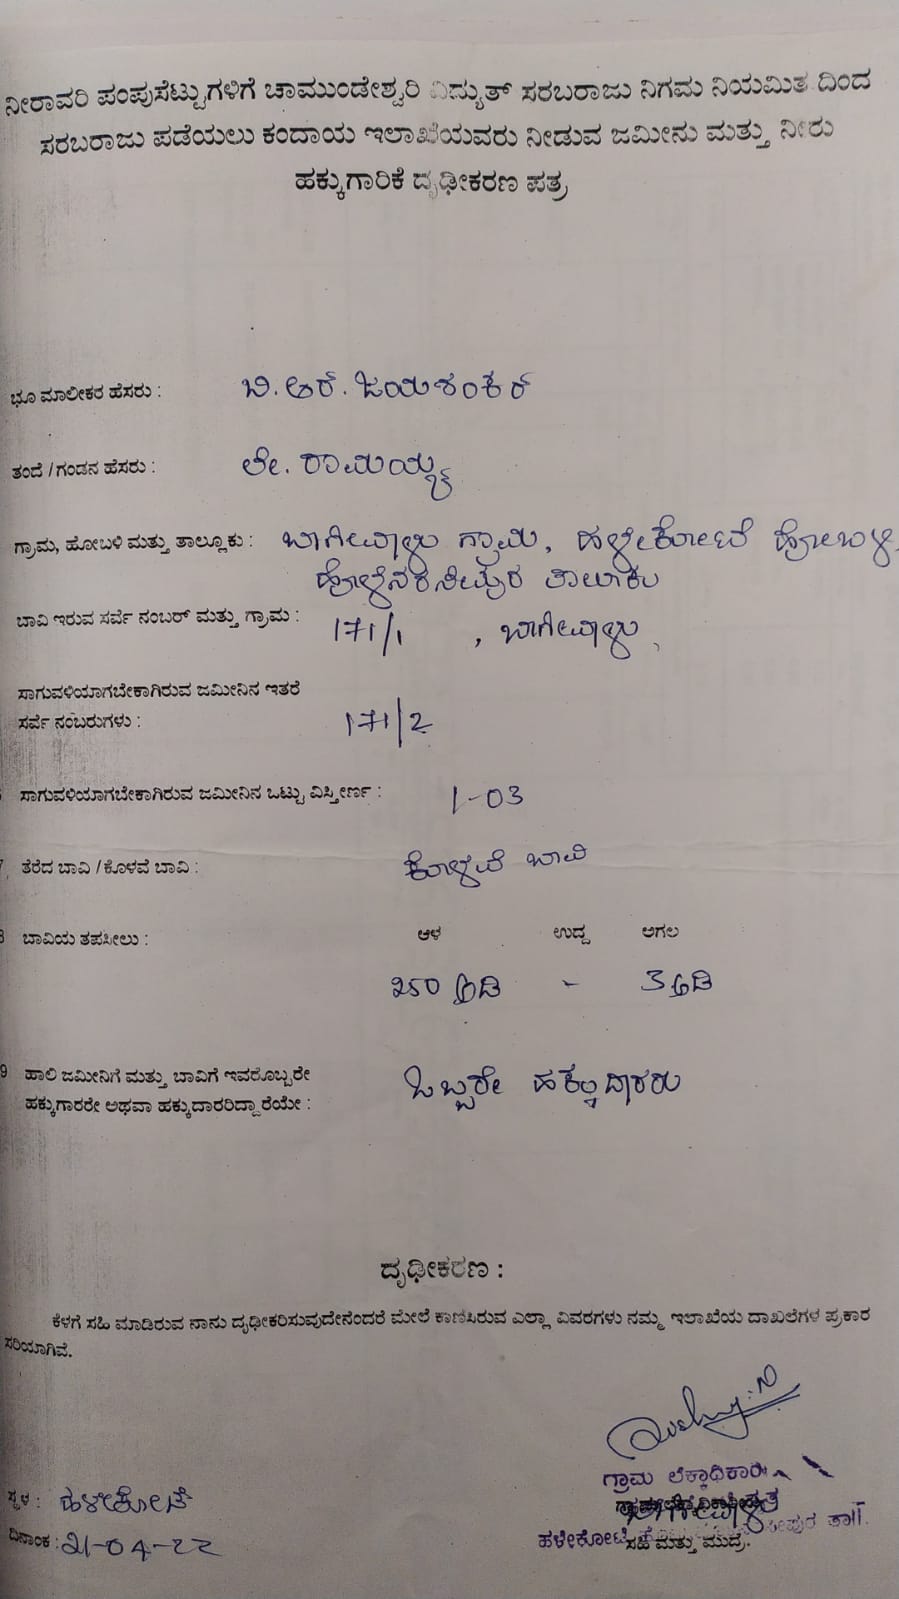 ನೀರಾವರಿ ಪಂಪುಸೆಟ್ಟುಗಳಿಗೆ ಚಾಮುಂಡೇಶ್ವರಿ ವಿದ್ಯುತ್ ಸರಬರಾಜು ನಿಗಮ ನಿಯಮಿತ ದಿಂದ
ಸರಬರಾಜು ಪಡೆಯಲು ಕಂದಾಯ ಇಲಾಖೆಯವರು ನೀಡುವ ಜಮೀನು ಮತ್ತು ನೀರು
ಹಕ್ಕುಗಾರಿಕೆ ದೃಢೀಕರಣ ಪತ್ರ
ಭೂ ಮಾಲೀಕರ ಹೆಸರು : ಬಿ. ಆರ್. ಜಯಶಂಕರ್
ತಂದೆ / ಗಂಡನ ಹೆಸರು : ಲೇ. ರಾಮಯ್ಯ
ಗ್ರಾಮ, ಹೋಬಳಿ ಮತ್ತು ತಾಲ್ಲೂಕು : ಬಾಗೀವಾಳು ಗ್ರಾಮ, ಹಳ್ಳೇಕೋಟೆ ಹೋಬಳಿ
ಹೊಳೆನರಸೀಪುರ ತಾಲೂಕು
ಬಾವಿ ಇರುವ ಸರ್ವೆ ನಂಬರ್ ಮತ್ತು ಗ್ರಾಮ : 171/1 , ಬಾಗೀವಾಳು
ಸಾಗುವಳಿಯಾಗಬೇಕಾಗಿರುವ ಜಮೀನಿನ ಇತರೆ
ಸರ್ವೆ ನಂಬರುಗಳು : 171/2
ಸಾಗುವಳಿಯಾಗಬೇಕಾಗಿರುವ ಜಮೀನಿನ ಒಟ್ಟು ವಿಸ್ತೀರ್ಣ : 1-03
ತೆರೆದ ಬಾವಿ / ಕೊಳವೆ ಬಾವಿ : ಕೊಳವೆ ಬಾವಿ
8 ಬಾವಿಯ ತಪಸೀಲು : ಆಳ ಉದ್ದ ಅಗಲ
250 ಅಡಿ - 3 ಅಡಿ
9 ಹಾಲಿ ಜಮೀನಿಗೆ ಮತ್ತು ಬಾವಿಗೆ ಇವರೊಬ್ಬರೇ
ಹಕ್ಕುಗಾರರೇ ಅಥವಾ ಹಕ್ಕುದಾರರಿದ್ದಾರೆಯೇ : ಒಬ್ಬರೇ ಹಕ್ಕುದಾರರು
ದೃಢೀಕರಣ :
ಕೆಳಗೆ ಸಹಿ ಮಾಡಿರುವ ನಾನು ದೃಢೀಕರಿಸುವುದೇನೆಂದರೆ ಮೇಲೆ ಕಾಣಿಸಿರುವ ಎಲ್ಲಾ ವಿವರಗಳು ನಮ್ಮ ಇಲಾಖೆಯ ದಾಖಲೆಗಳ ಪ್ರಕಾರ
ಸರಿಯಾಗಿವೆ.
ಗ್ರಾಮ ಲೆಕ್ಕಾಧಿಕಾರಿ
ಸ್ಥಳ : ಹಳೇಕೋಟೆ
ಹಳೇಕೋಟೆ
ದಿನಾಂಕ : 21-04-22
ಸಹಿ ಮತ್ತು ಮುದ್ರೆ.